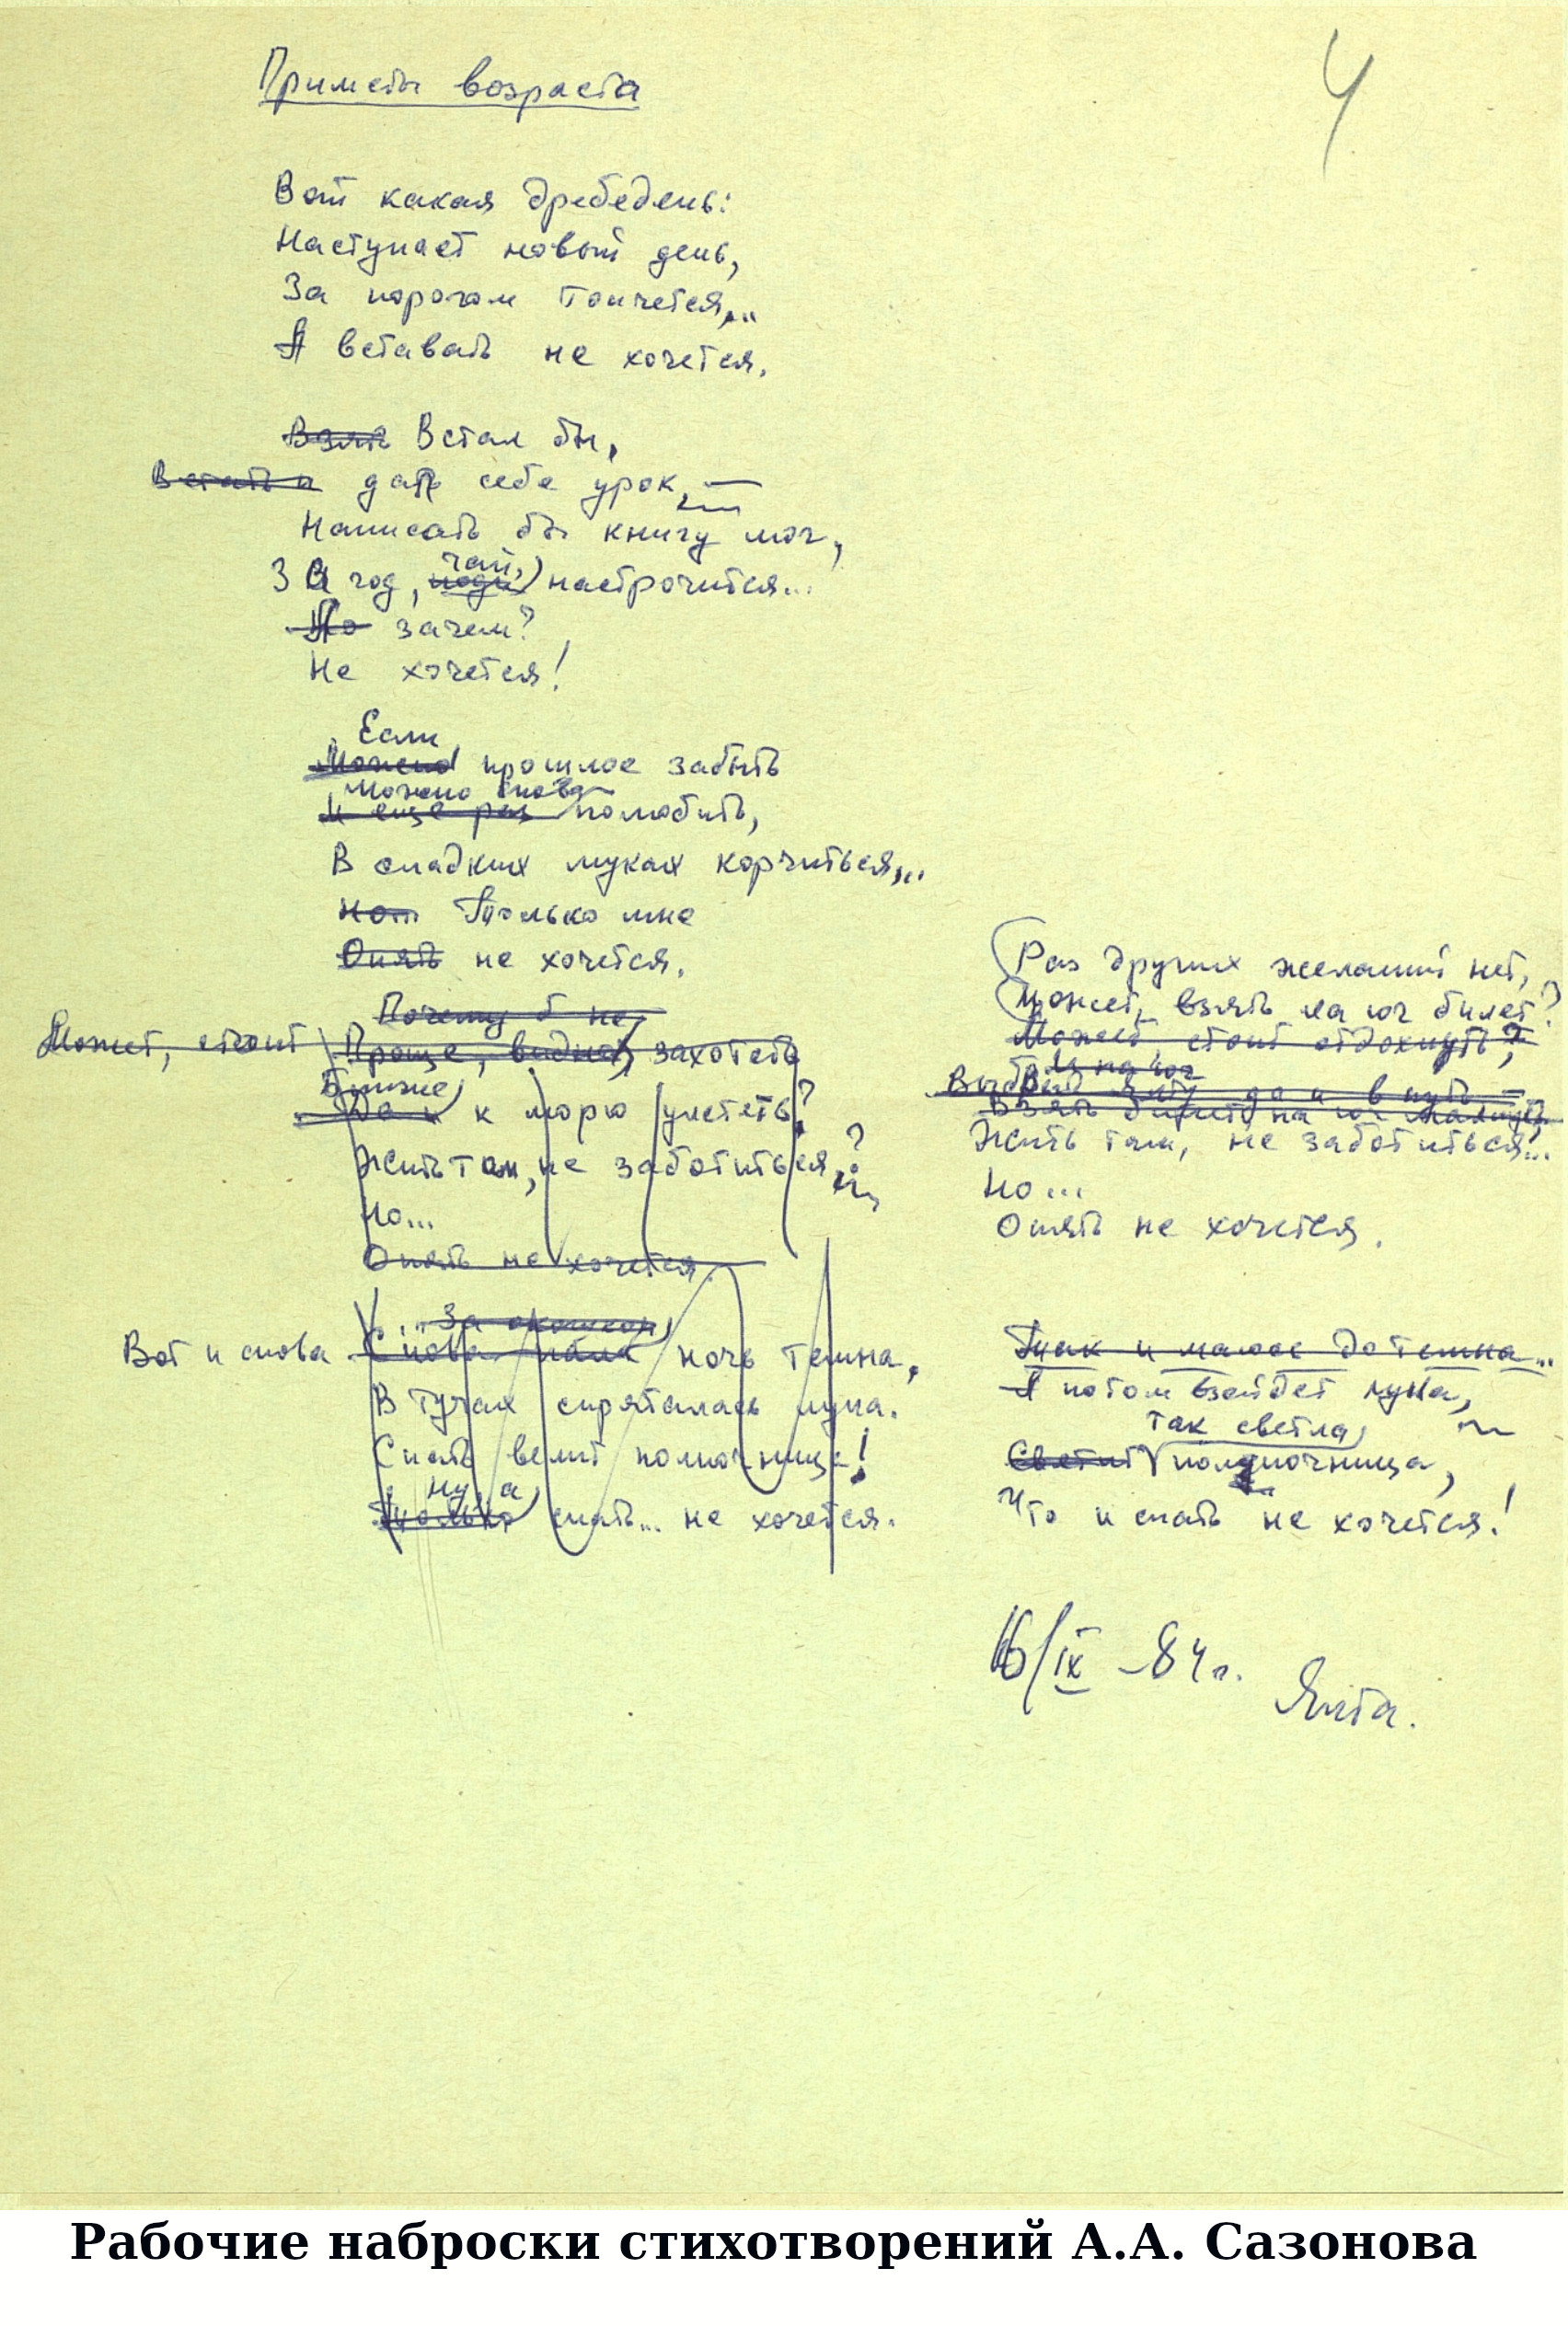 Приметы возраста
4
Вот какая дребедень:
Наступает новый день,
За порогом топчется,..
А вставать не хочется.
Взять Встал бы,
Встать и дать себе урок, —
Написать бы книгу мог,
За год, поди чай, настрочится...
Но зачем?
Не хочется!
Если
Можно прошлое забыть
Можно снова
И еще раз полюбить,
В сладких муках корчиться,..
Но Только мне
Опять не хочется.
Почему б не
Может, стоит Проще, видно, захотеть
Ближе
Да к к морю улететь?
Жить там, не заботиться?
Но...
Опять не хочется.
За окошком
Вот и снова Снова ночь темна,
В тучах спряталась луна.
Спать велит полночница!
Ну, а
Только спать... не хочется.
Раз других желаний нет,
Может, взять на юг билет?
Может стоит отдохнуть?
на юг
да и в путь —
Взять билет на юг
Жить там, не заботиться...
Но...
Опять не хочется.
Так и маюсь до темна...
А потом взойдет луна,
так светла,
Светит полуночница,
Что и спать не хочется!
16/IX –84 г.
Ялта.
Рабочие наброски стихотворений А.А. Сазонова